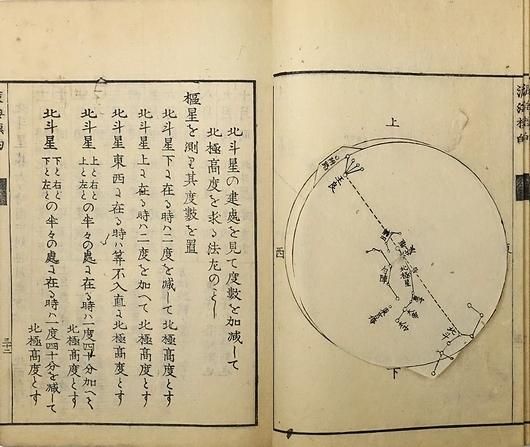 上
西
下
北極星
北斗星の建處を見て度數を加減して
北極高度を求る法左のとし
樞星を測り其度數を置
北斗星下に在る時ハ二度を減して北極高度とす
北斗星上に在る時ハ二度を加へて北極高度とす
北斗星東西に在る時ハ算不入直に北極高度とす
北斗星上と右と上と左との半々の處に在る時ハ一度四十分加へて北極高度とす
北斗星下と右と下と左との半々の處に在る時ハ一度四十分を減して北極高度とす
三十二